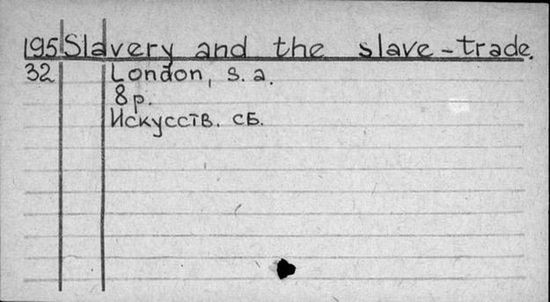 195 Slavery and the slave-trade.
32 London, s. a.
8 p.
Искусств. сб.